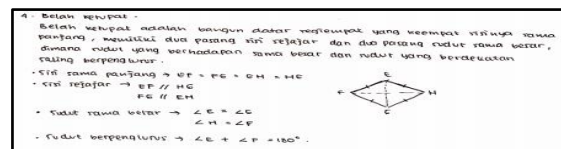 4. Belah ketupat.
Belah ketupat adalah bangun datar segiempat yang keempat sisinya sama
panjang, memiliki dua pasang sisi sejajar dan dua pasang sudut sama besar,
dimana sudut yang berhadapan sama besar dan sudut yang berdekatan
saling berpenglurus.
• Sisi sama panjang → EF = FG = GH = HE
• Sisi sejajar → EF // HG
FG // EH
• Sudut sama besar → ∠E = ∠G
∠H = ∠F
• Sudut berpenglurus → ∠E + ∠F = 180°.
E
F
H
G